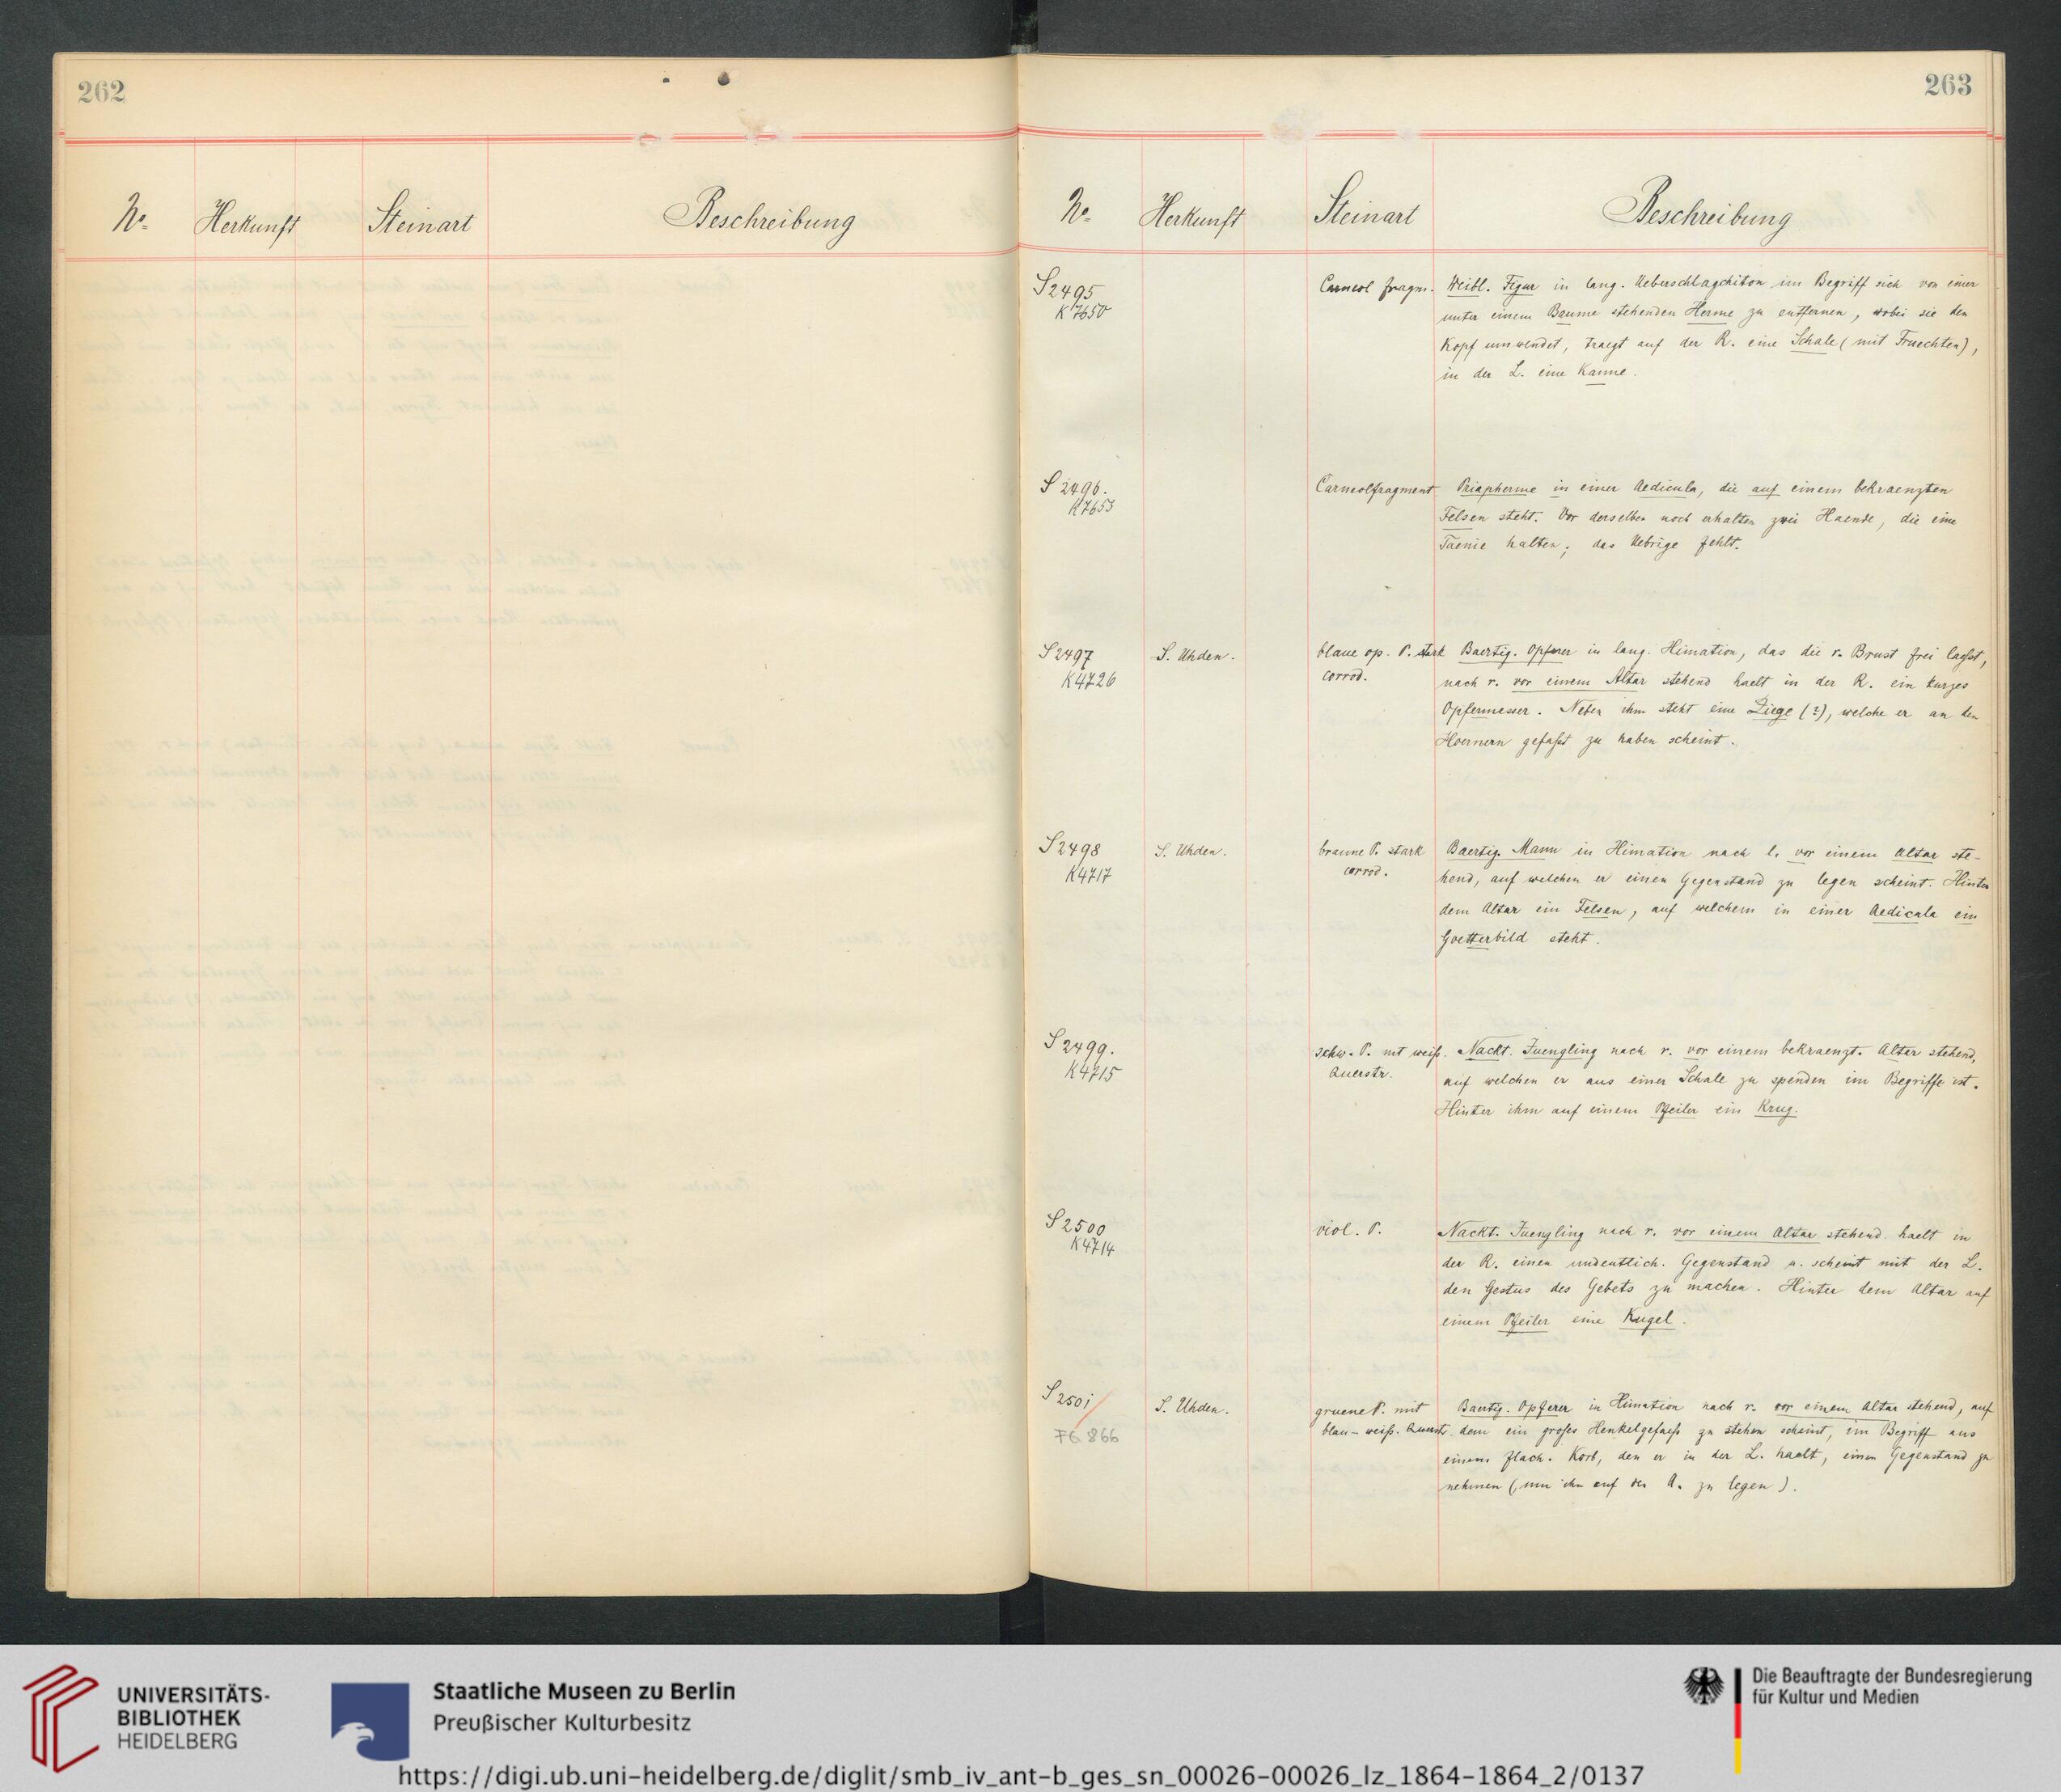 262
No. Herkunft Steinart Beschreibung
263
No. Herkunft Steinart Beschreibung
S 2495 Carneol fragm. Weibl. Figur in lang. Ueberschlagchiton im Begriff sich von einer
K 7650 unter einem Baume stehenden Herme zu entfernen, wobei sie den
Kopf umwendet, traegt auf der R. eine Schale (mit Fruechten),
in der L. eine Kanne.
S 2496. Carneolfragment Priapherme in einer Aedicula, die auf einem bekraenzten
K 7653 Felsen steht. Vor derselben noch erhalten zwei Haende, die eine
Taenie halten; das Uebrige fehlt.
S 2497 S. Uhden. blaue op. P. stark Baertig. Opferer in lang. Himation, das die r. Brust frei laesst,
K 4726 corrod. nach r. vor einem Altar stehend haelt in der R. ein kurzes
Opfermesser. Neben ihm steht eine Ziege (?), welche er an den
Hoernern gefaßt zu haben scheint.
S 2498 S. Uhden. braune P. stark Baertig. Mann in Himation nach l. vor einem Altar ste-
K 4717 corrod. hend, auf welchen er einen Gegenstand zu legen scheint. Hinter
dem Altar ein Felsen, auf welchem in einer Aedicula ein
Goetterbild steht.
S 2499. schw. P. mit weiß. Nackt. Juengling nach r. vor einem bekraenzt. Altar stehend,
K 4715 Querstr. auf welchen er aus einer Schale zu spenden im Begriffe ist.
Hinter ihm auf einem Pfeiler ein Krug.
S 2500 viol. P. Nackt. Juengling nach r. vor einem Altar stehend haelt in
K 4714 der R. einen undeutlich. Gegenstand u. scheint mit der L.
den Gestus des Gebets zu machen. Hinter dem Altar auf
einem Pfeiler eine Kugel.
S 2501 S. Uhden. gruene P. mit Baertig. Opferer in Himation nach r. vor einem Altar stehend, auf
FG 866 blau-weiß. Querstr. dem ein großes Henkelgefaeß zu stehen scheint, im Begriff aus
einem flach. Korb, den er in der L. haelt, einen Gegenstand zu
nehmen (um ihn auf den A. zu legen).
UNIVERSITÄTS-
BIBLIOTHEK
HEIDELBERG
Staatliche Museen zu Berlin
Preußischer Kulturbesitz
Die Beauftragte der Bundesregierung
für Kultur und Medien
https://digi.ub.uni-heidelberg.de/diglit/smb_iv_ant-b_ges_sn_00026-00026_lz_1864-1864_2/0137